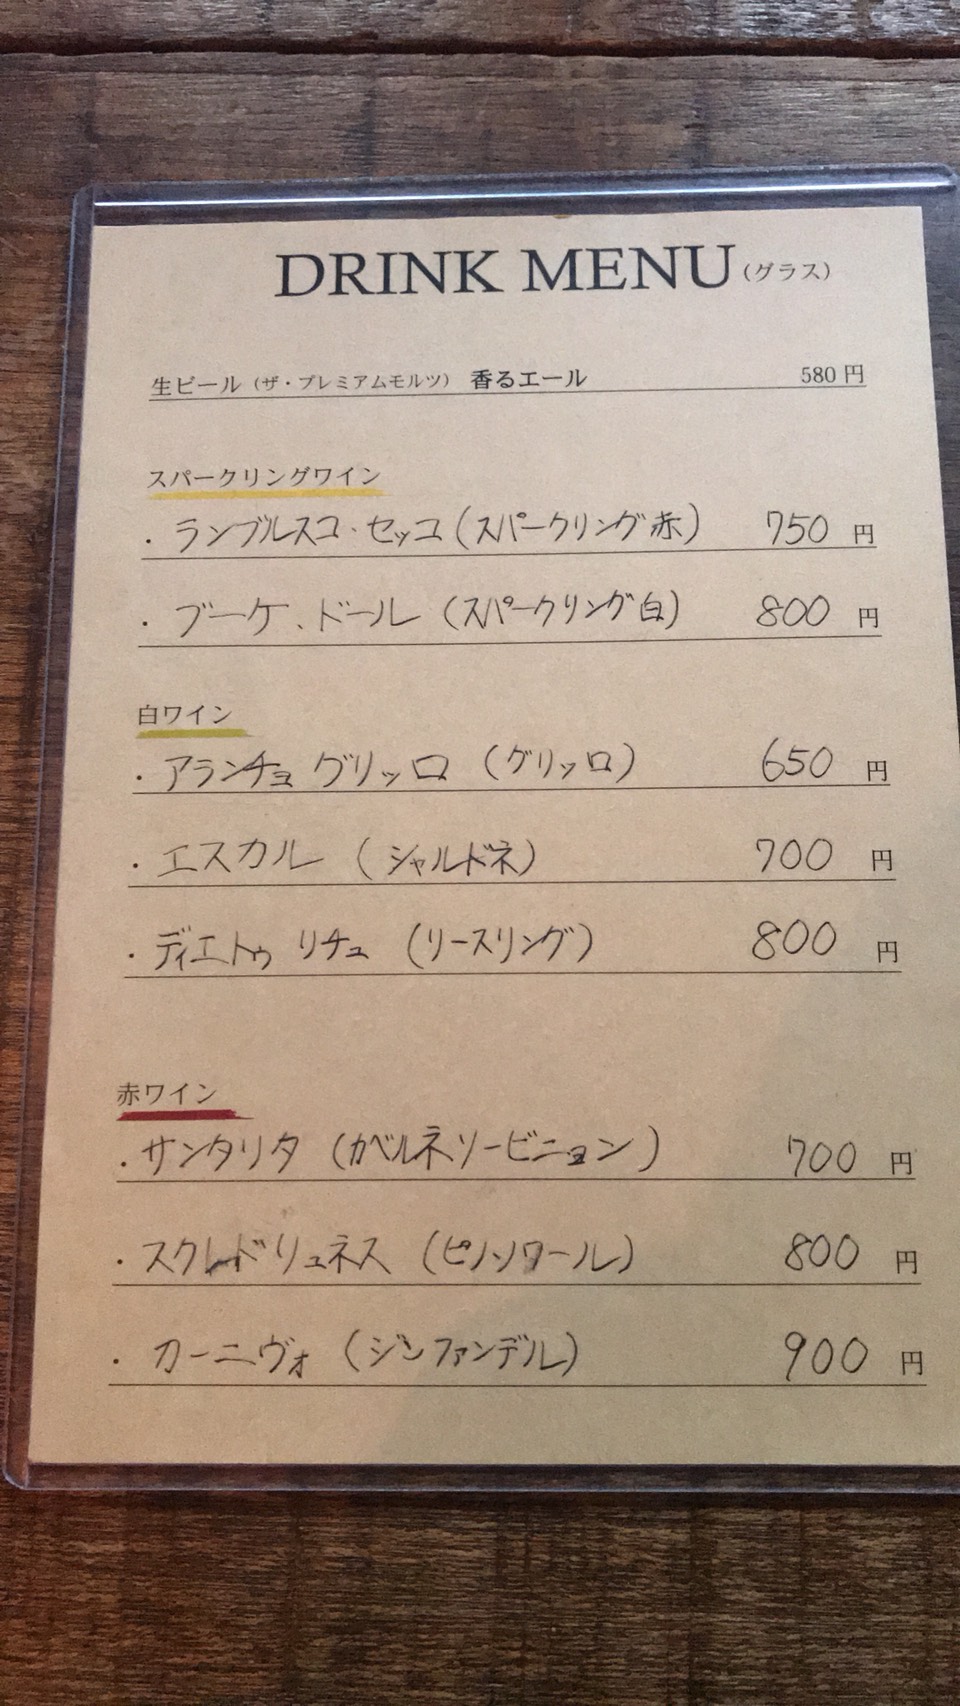 DRINK MENU (グラス)
生ビール (ザ・プレミアムモルツ) 香るエール 580 円
スパークリングワイン
・ランブルスコ・セッコ (スパークリング赤) 750 円
・ブーケ、ドール (スパークリング白) 800 円
白ワイン
・アランチョ グリッロ (グリッロ) 650 円
・エスカル (シャルドネ) 700 円
・ディエトゥ リチュ (リースリング) 800 円
赤ワイン
・サンタリタ (カベルネソービニョン) 700 円
・スクレドリュネス (ピノノワール) 800 円
・カーニヴォ (ジンファンデル) 900 円